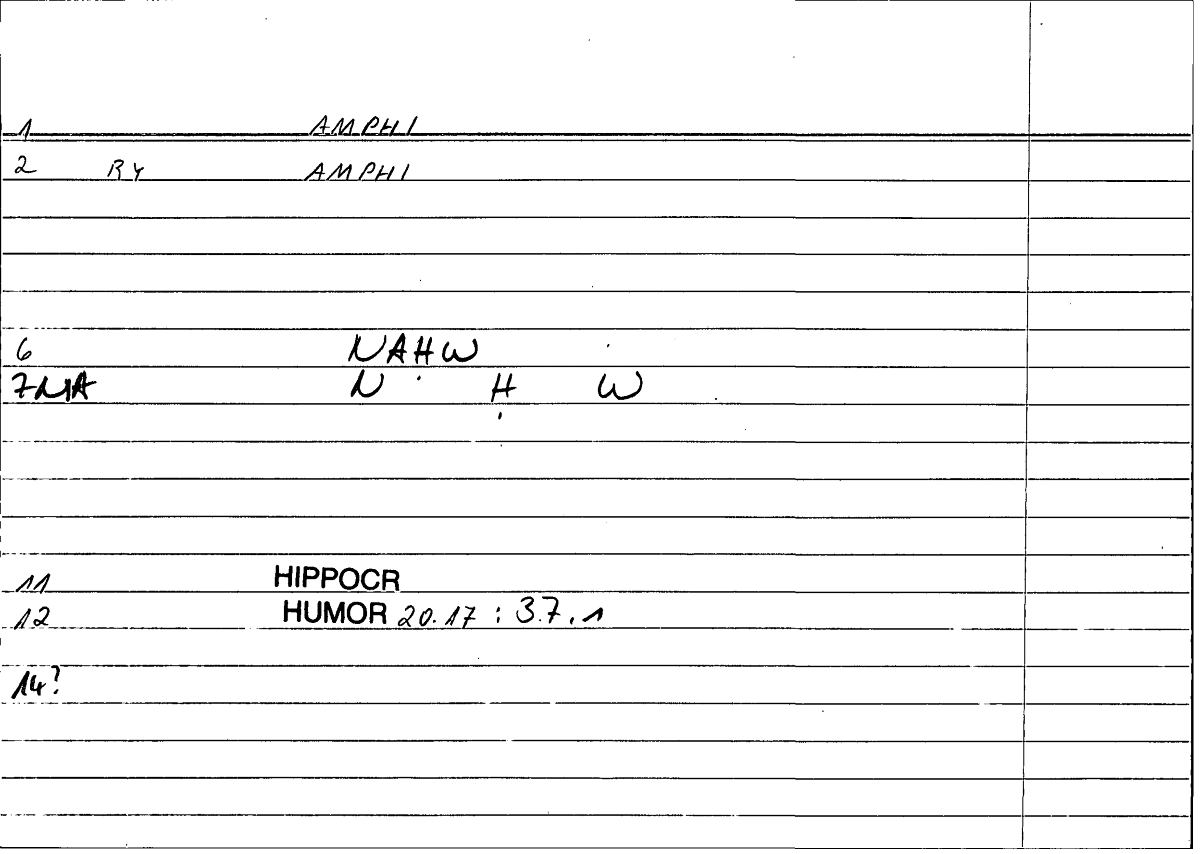 1 AMPHI
2 RY AMPHI
6 NAHW
7 NA N H W
11 HIPPOCR
12 HUMOR 20.17 : 37.1
14?